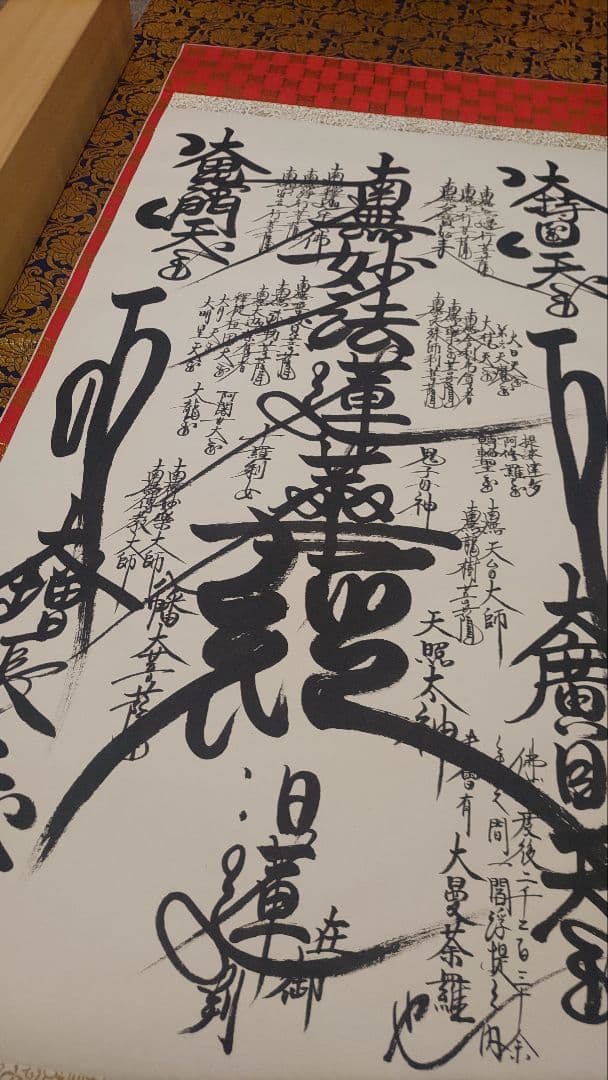 大持国天王
南無無辺行菩薩
南無上行菩薩
南無多宝如来
南無妙法蓮華経
南無釈迦牟尼佛
南無浄行菩薩
南無安立行菩薩
大毘沙門天王
大日天王
第六天魔王
大梵天王
南無舎利弗尊者
南無薬王菩薩
南無文殊師利菩薩
南無普賢菩薩
南無弥勒菩薩
南無大迦葉尊者
釈提桓因大王
大月天王
大明星天王
提婆達多
阿修羅王
転輪聖王
鬼子母神
十羅刹女
阿闍世大王
大龍王
南無天台大師
南無龍樹菩薩
南無妙楽大師
南無傳教大師
天照太神
八幡大菩薩
大廣目天王
大増長天王
佛滅度後二千二百三十余
年之間一閻浮提之内
未曾有
大曼荼羅
也
日蓮
在御判